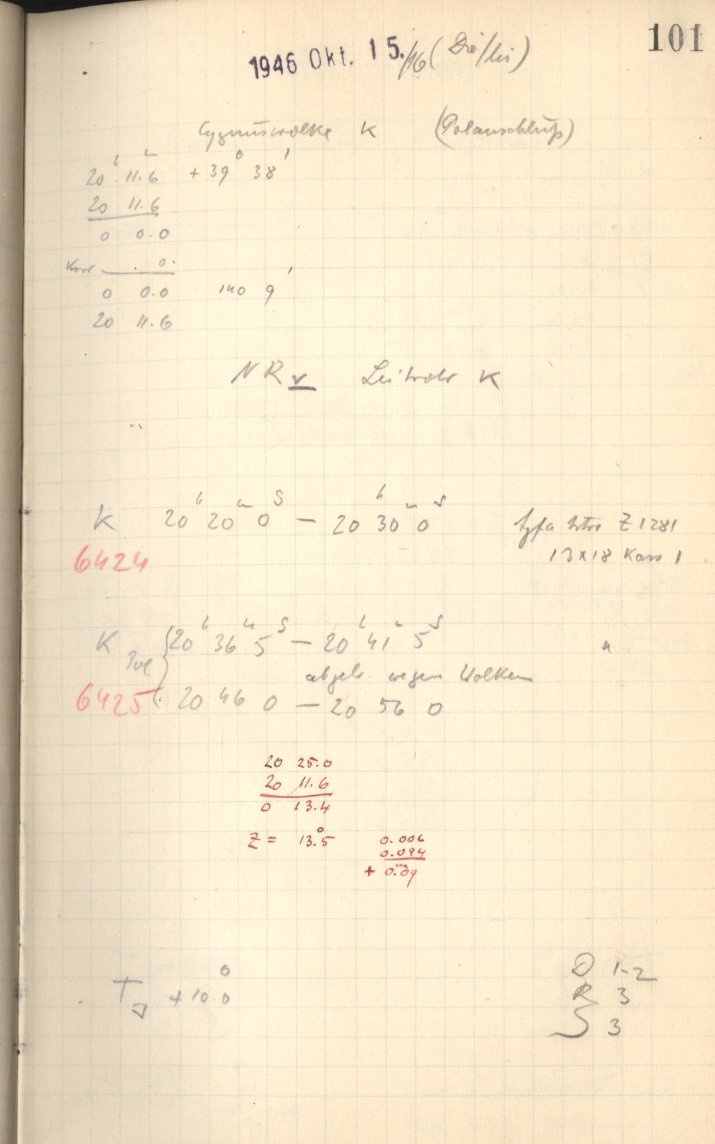 101
1946 Okt. 15./16 (Die/Mi)
Cygnuswolke K (Polanschluß)
20h 11.6m + 39° 38'
20 11.6
0 0.0
Korr 0.
0 0.0 140 9'
20 11.6
NRv Leitrohr K
K 20h 20m 0s — 20h 30m 0s Agfa Z 1281
6424 13x18 Kass 1
K Pol 20h 36m 5s — 20h 41m 5s "
abgebr. wegen Wolken
6425 20 46 0 — 20 56 0
20 25.0
20 11.6
0 13.4
Z = 13.°5 0.006
0.094
+ 0.m09
T + 10.°0
D 1-2
R 3
S 3